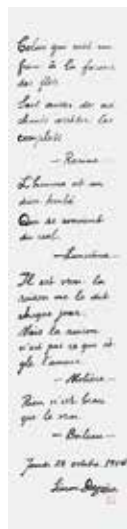 Celui qui met un
frein à la fureur
des flots
Sait aussi des mé
chants arrêter les
complots
— Racine —
L'homme est un
dieu tombé
Qui se souvient
du ciel.
— Lamartine —
Il est vrai la
raison me le dit
chaque jour.
Mais la raison
n'est pas ce qui rè
gle l'amour
— Molière —
Rien n'est beau
que le vrai
— Boileau —
Jeudi 28 octobre
Simon